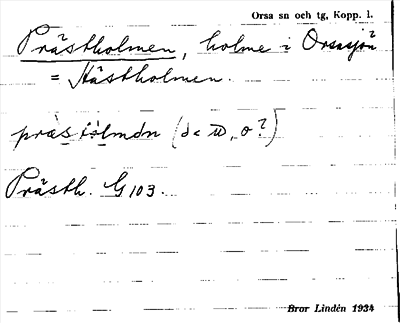 Orsa sn och tg, Kopp. l.
Prästholmen, holme i Orsasjön
= Hästholmen.
Prästh. G 103.
Bror Lindén 1934